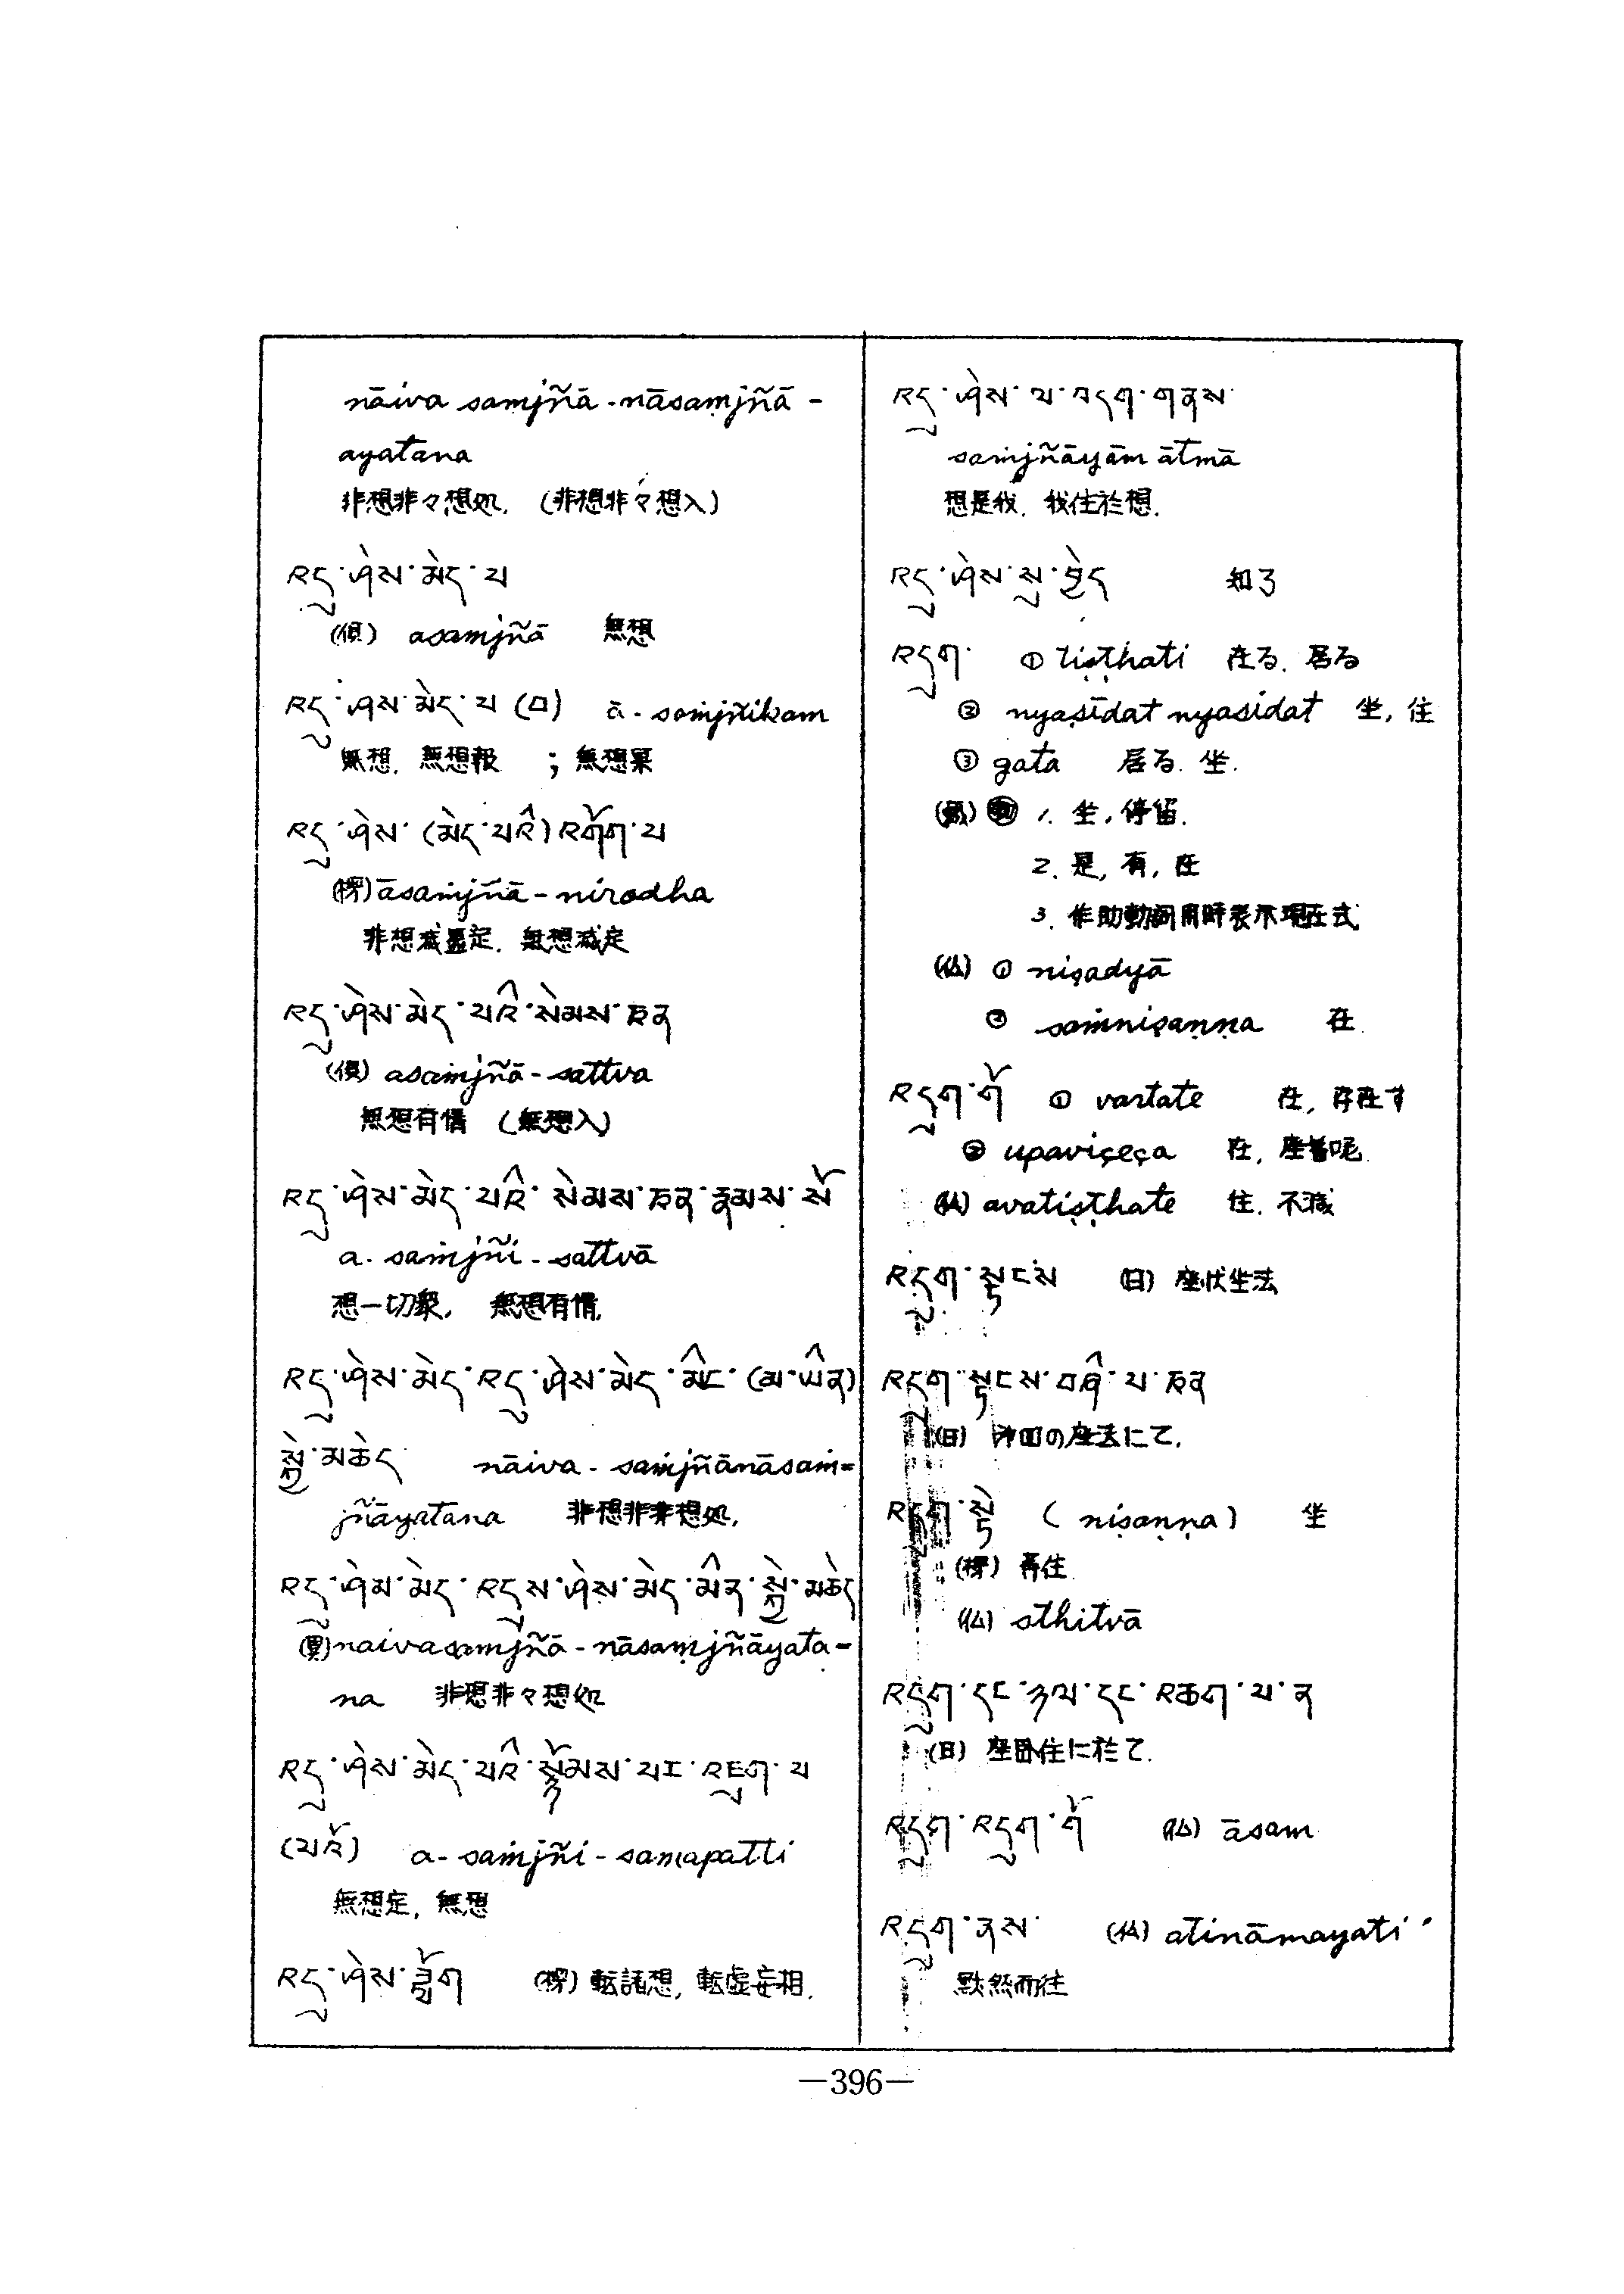 nāiva saṃjñā-nāsaṃjñā-
ayatana
非想非々想処. (非想非々想入)
འདུ་ཤེས་མེད་པ
(倶) asaṃjñā 無想
འདུ་ཤས་མེད་པ (ロ) ā-saṁjñikam
無想. 無想報 ; 無想果
འདུ་ཤེས་(མེད་པའི)འགོག་པ
(楞) āsaṁjñā-nirodha
非想滅盡定. 無想滅定
འདུ་ཤེས་མེད་པའི་སེམས་ཅན
(倶) asaṁjñā-sattva
無想有情 (無想入)
འདུ་ཤེས་མེད་པའི་སེམས་ཅན་རྣམས་སོ
a-saṁjñi-sattvā
想一切衆, 無想有情,
འདུ་ཤེས་མེད་འདུ་ཤེས་མེད་མིང་(མ་ཡིན)
སྐྱེ་མཆེད nāiva-saṁjñānāsaṁ=
jñāyatana 非想非非想処,
འདུ་ཤེམ་མེད་འདུས་ཤེས་མེད་མིན་སྐྱེ་མཆེད
naivasaṃjñā-nāsaṃjñāyata-
na 非想非々想処
འདུ་ཤེས་མེད་པའི་སྙོམས་པར་འཇུག་པ
(པའོ) a-saṁjñi-samapatti
無想定, 無想
འདུ་ཤེས་ཟློག (楞) 転諸想, 転虚妄相.
འདུ་ཤེས་ལ་བདག་གནས་
saṁjñāyām ātmā
想是我. 我住於想.
འདུ་ཤེས་སུ་བྱེད 知了
འདུག་ ① tiṣṭhati 在る. 居る
② nyaṣīdat nyasidat 坐, 住
③ gata 居る. 坐.
1. 坐, 停留.
2. 是, 有, 在
3. 作助動詞用時表示現在式
(仏) ① niṣadyā
② saṁniṣaṇṇa 在.
འདུག་གོ ① vartate 在, 存在す
② upaviçeça 在, 座着呢.
(仏) avatiṣṭhate 住. 不滅
འདུག་སྟངས (日) 座状坐法
འདུག་སྟངས་བཞི་པ་ཅན
(日) 四の座法にて.
འདུག་སྟེ (niṣaṇṇa) 坐
(楞) 再住.
(仏) sthitvā
འདུག་དང་ཉལ་དང་འཆག་པ་ན
(日) 座臥住に於て.
འདུག་འདུག་གོ (仏) āsam
འདུག་ནས་ (仏) atināmayati
黙然而住
—396—